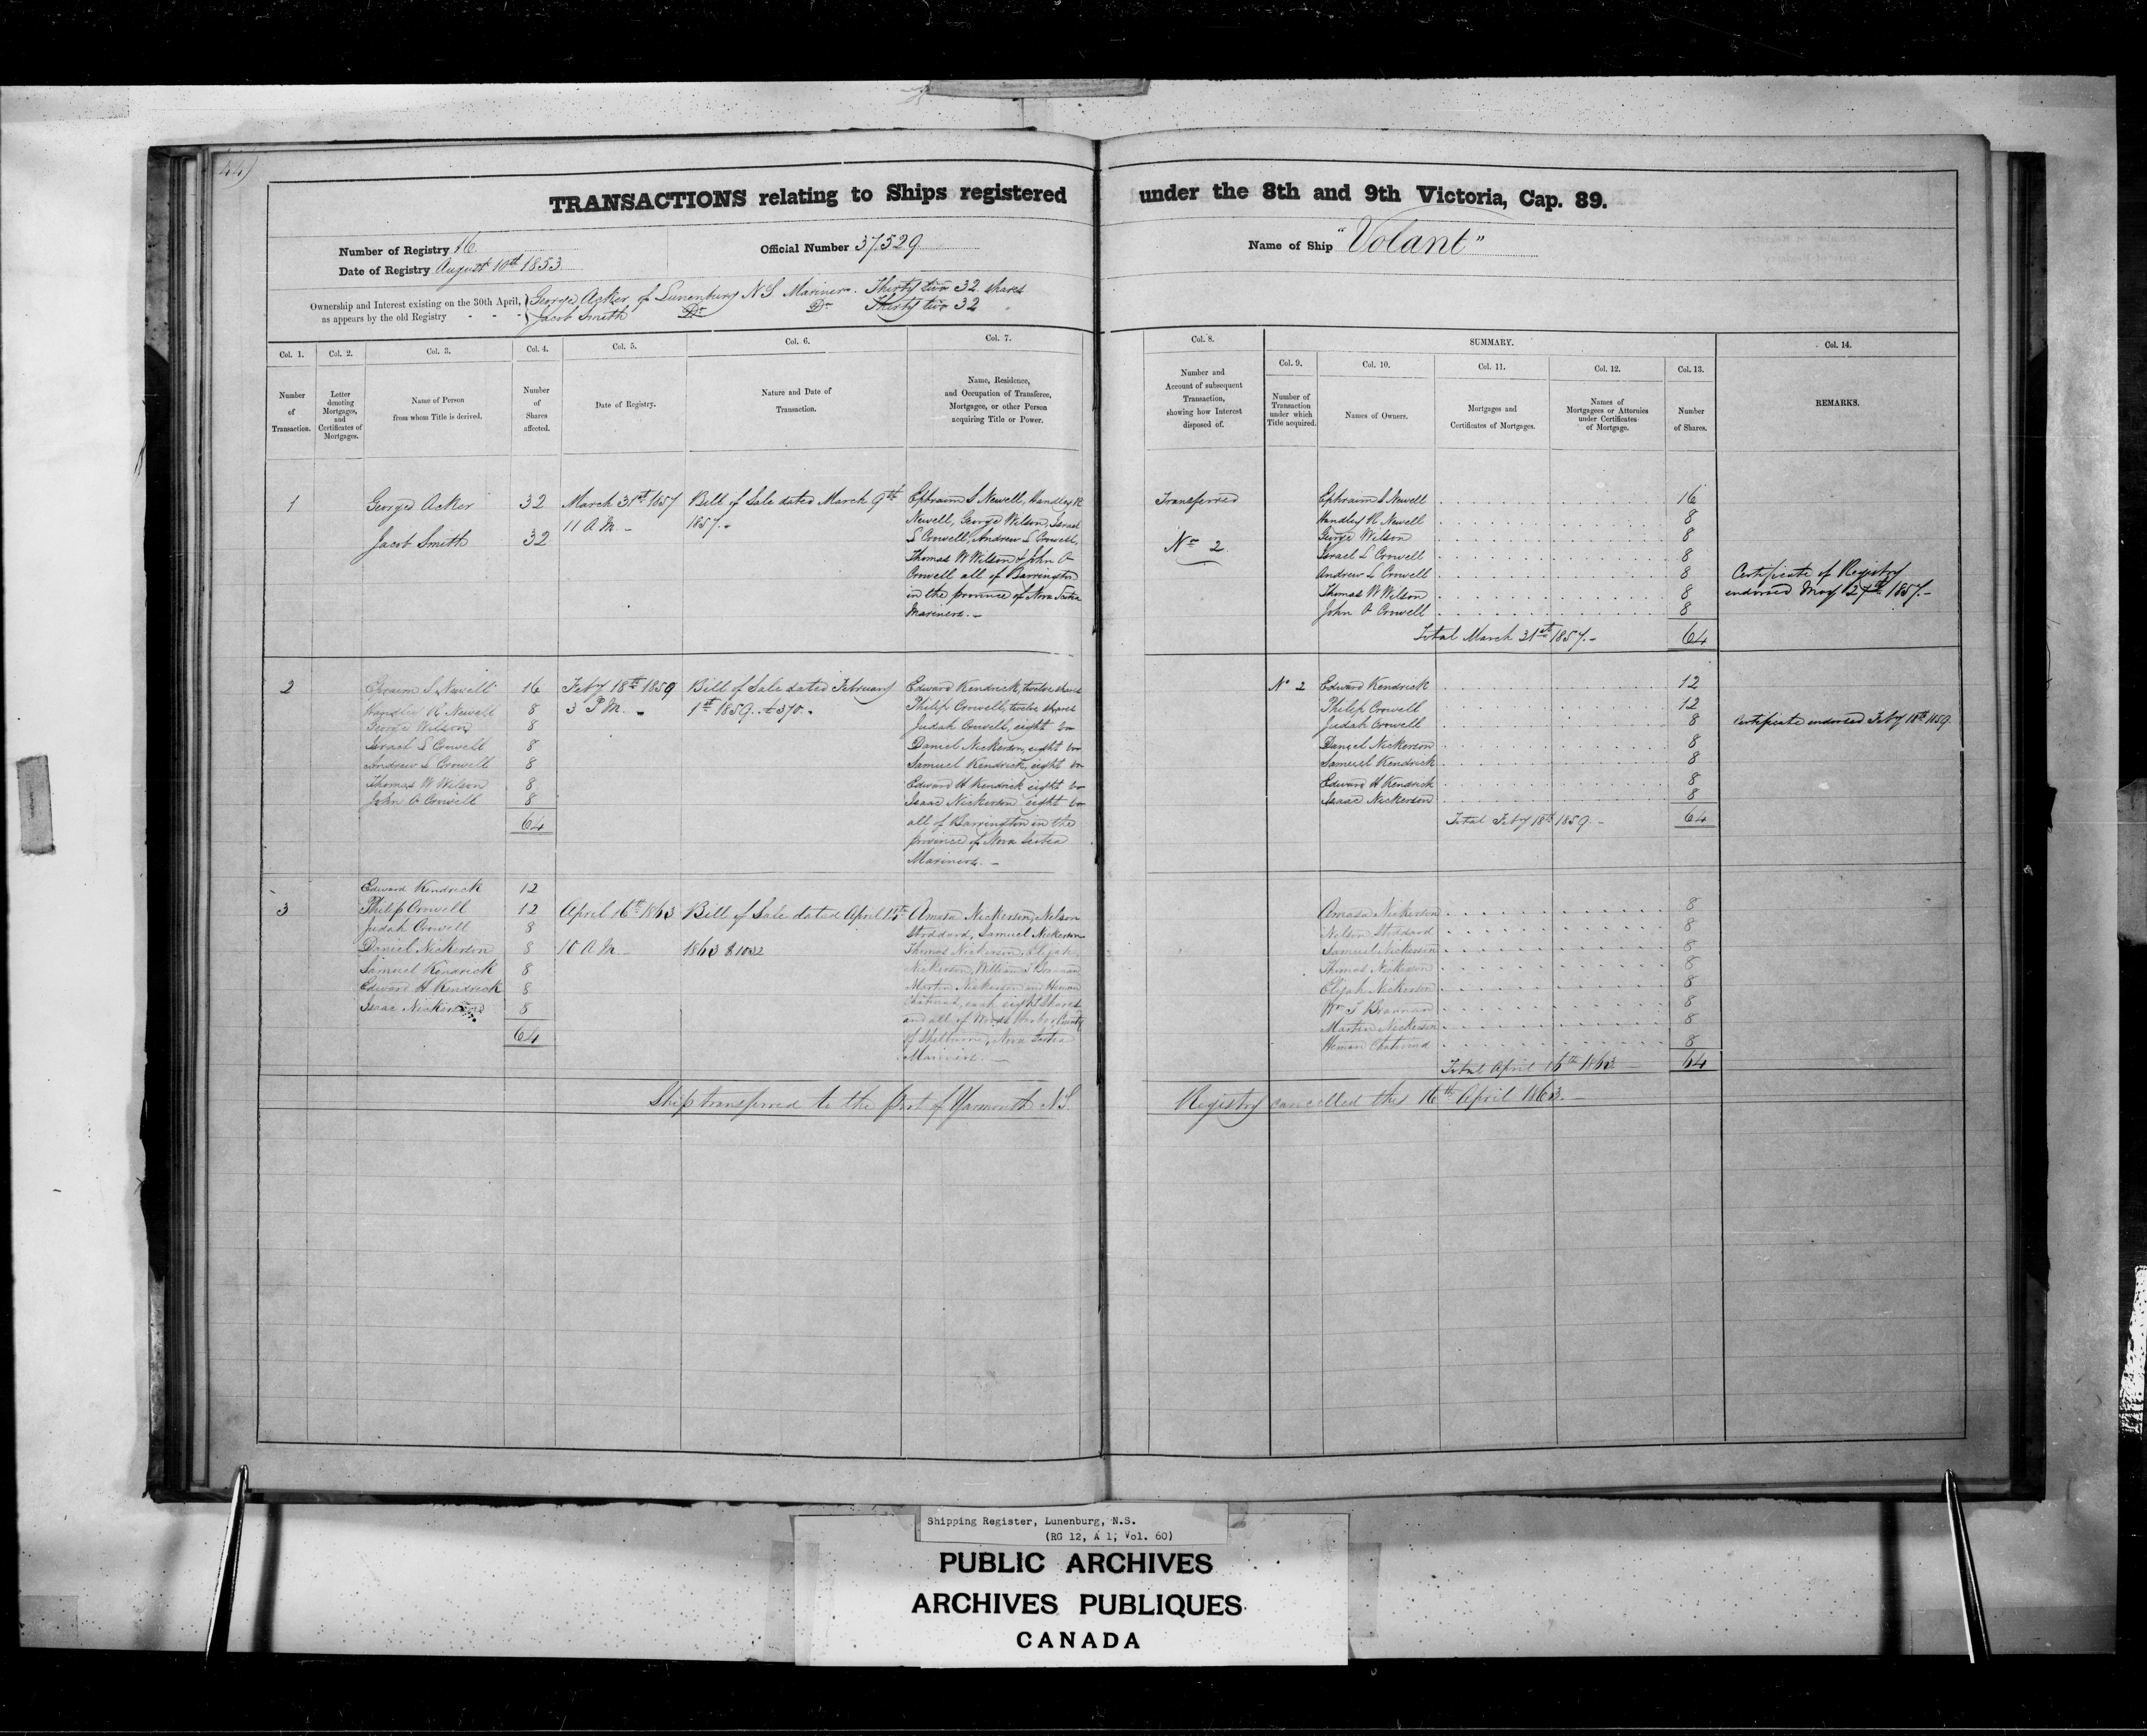 44)
TRANSACTIONS relating to Ships registered under the 8th and 9th Victoria, Cap. 89.
Number of Registry 16
Official Number 37529
Name of Ship "Volant"
Date of Registry August 10th 1853
Ownership and Interest existing on the 30th April, } George Acker of Lunenburg N S Mariner. Thirty two 32 shares
as appears by the old Registry - - - Jacob Smith Do Do Thirty two 32 "
Col. 1. Col. 2. Col. 3. Col. 4. Col. 5. Col. 6. Col. 7. Col. 8. SUMMARY. Col. 14.
Col. 9. Col. 10. Col. 11. Col. 12. Col. 13.
Number of Transaction.
Letter denoting Mortgages, and Certificates of Mortgages.
Name of Person from whom Title is derived.
Number of Shares affected.
Date of Registry.
Nature and Date of Transaction.
Name, Residence, and Occupation of Transferee, Mortgagee, or other Person acquiring Title or Power.
Number and Account of subsequent Transaction, showing how Interest disposed of.
Number of Transaction under which Title acquired.
Names of Owners.
Mortgages and Certificates of Mortgages.
Names of Mortgagees or Attornies under Certificates of Mortgage.
Number of Shares.
REMARKS.
1
George Acker 32
Jacob Smith 32
March 31st 1857
11 A M -
Bill of Sale dated March 9th
1857.-
Ephraim S Newell, Handley R
Newell, George Wilson, Israel
S Crowell, Andrew S Crowell,
Thomas W Wilson & John O
Crowell all of Barrington
in the province of Nova Scotia
Mariners.-
Transferred
No 2.
Ephraim S Newell 16
Handley R Newell 8
George Wilson 8
Israel S Crowell 8
Andrew S Crowell 8
Thomas W Wilson 8
John O Crowell 8
Total March 31st 1857.- 64
Certificate of Registry
endorsed May 27th 1857.-
2
Ephraim S Newell 16
Handley R Newell 8
George Wilson 8
Israel S Crowell 8
Andrew S Crowell 8
Thomas W Wilson 8
John O Crowell 8
64
Feby 18th 1859
3 P M. -
Bill of Sale dated February
1st 1859. £370.-
Edward Kendrick, twelve shares
Philip Crowell, twelve shares
Judah Crowell, eight Do
Daniel Nickerson, eight Do
Samuel Kendrick, eight Do
Edward H Kendrick eight Do
Isaac Nickerson eight Do
all of Barrington in the
province of Nova Scotia
Mariners.-
No 2
Edward Kendrick 12
Philip Crowell 12
Judah Crowell 8
Daniel Nickerson 8
Samuel Kendrick 8
Edward H Kendrick 8
Isaac Nickerson 8
Total Feby 18th 1859.- 64
Certificate endorsed Feby 18th 1859
3
Edward Kendrick 12
Philip Crowell 12
Judah Crowell 8
Daniel Nickerson 8
Samuel Kendrick 8
Edward H Kendrick 8
Isaac Nickerson 8
64
April 16th 1863
10 A M -
Bill of Sale dated April 15th
1863 $1032
Amasa Nickerson, Nelson
Stoddard, Samuel Nickerson
Thomas Nickerson, Elijah
Nickerson, William S Brannan
Martin Nickerson and Heman
each eight Shares
and all of Woods Harbor, County
of Shelburne, Nova Scotia
Mariners.-
Amasa Nickerson 8
Nelson Stoddard 8
Samuel Nickerson 8
Thomas Nickerson 8
Elijah Nickerson 8
Wm S Brannan 8
Martin Nickerson 8
Heman 8
Total April 16th 1863 - 64
Ship transferred to the Port of Yarmouth N.S. Registry cancelled this 16th April 1863.-
Shipping Register, Lunenburg, N.S.
(RG 12, A 1, Vol. 60)
PUBLIC ARCHIVES
ARCHIVES PUBLIQUES
CANADA